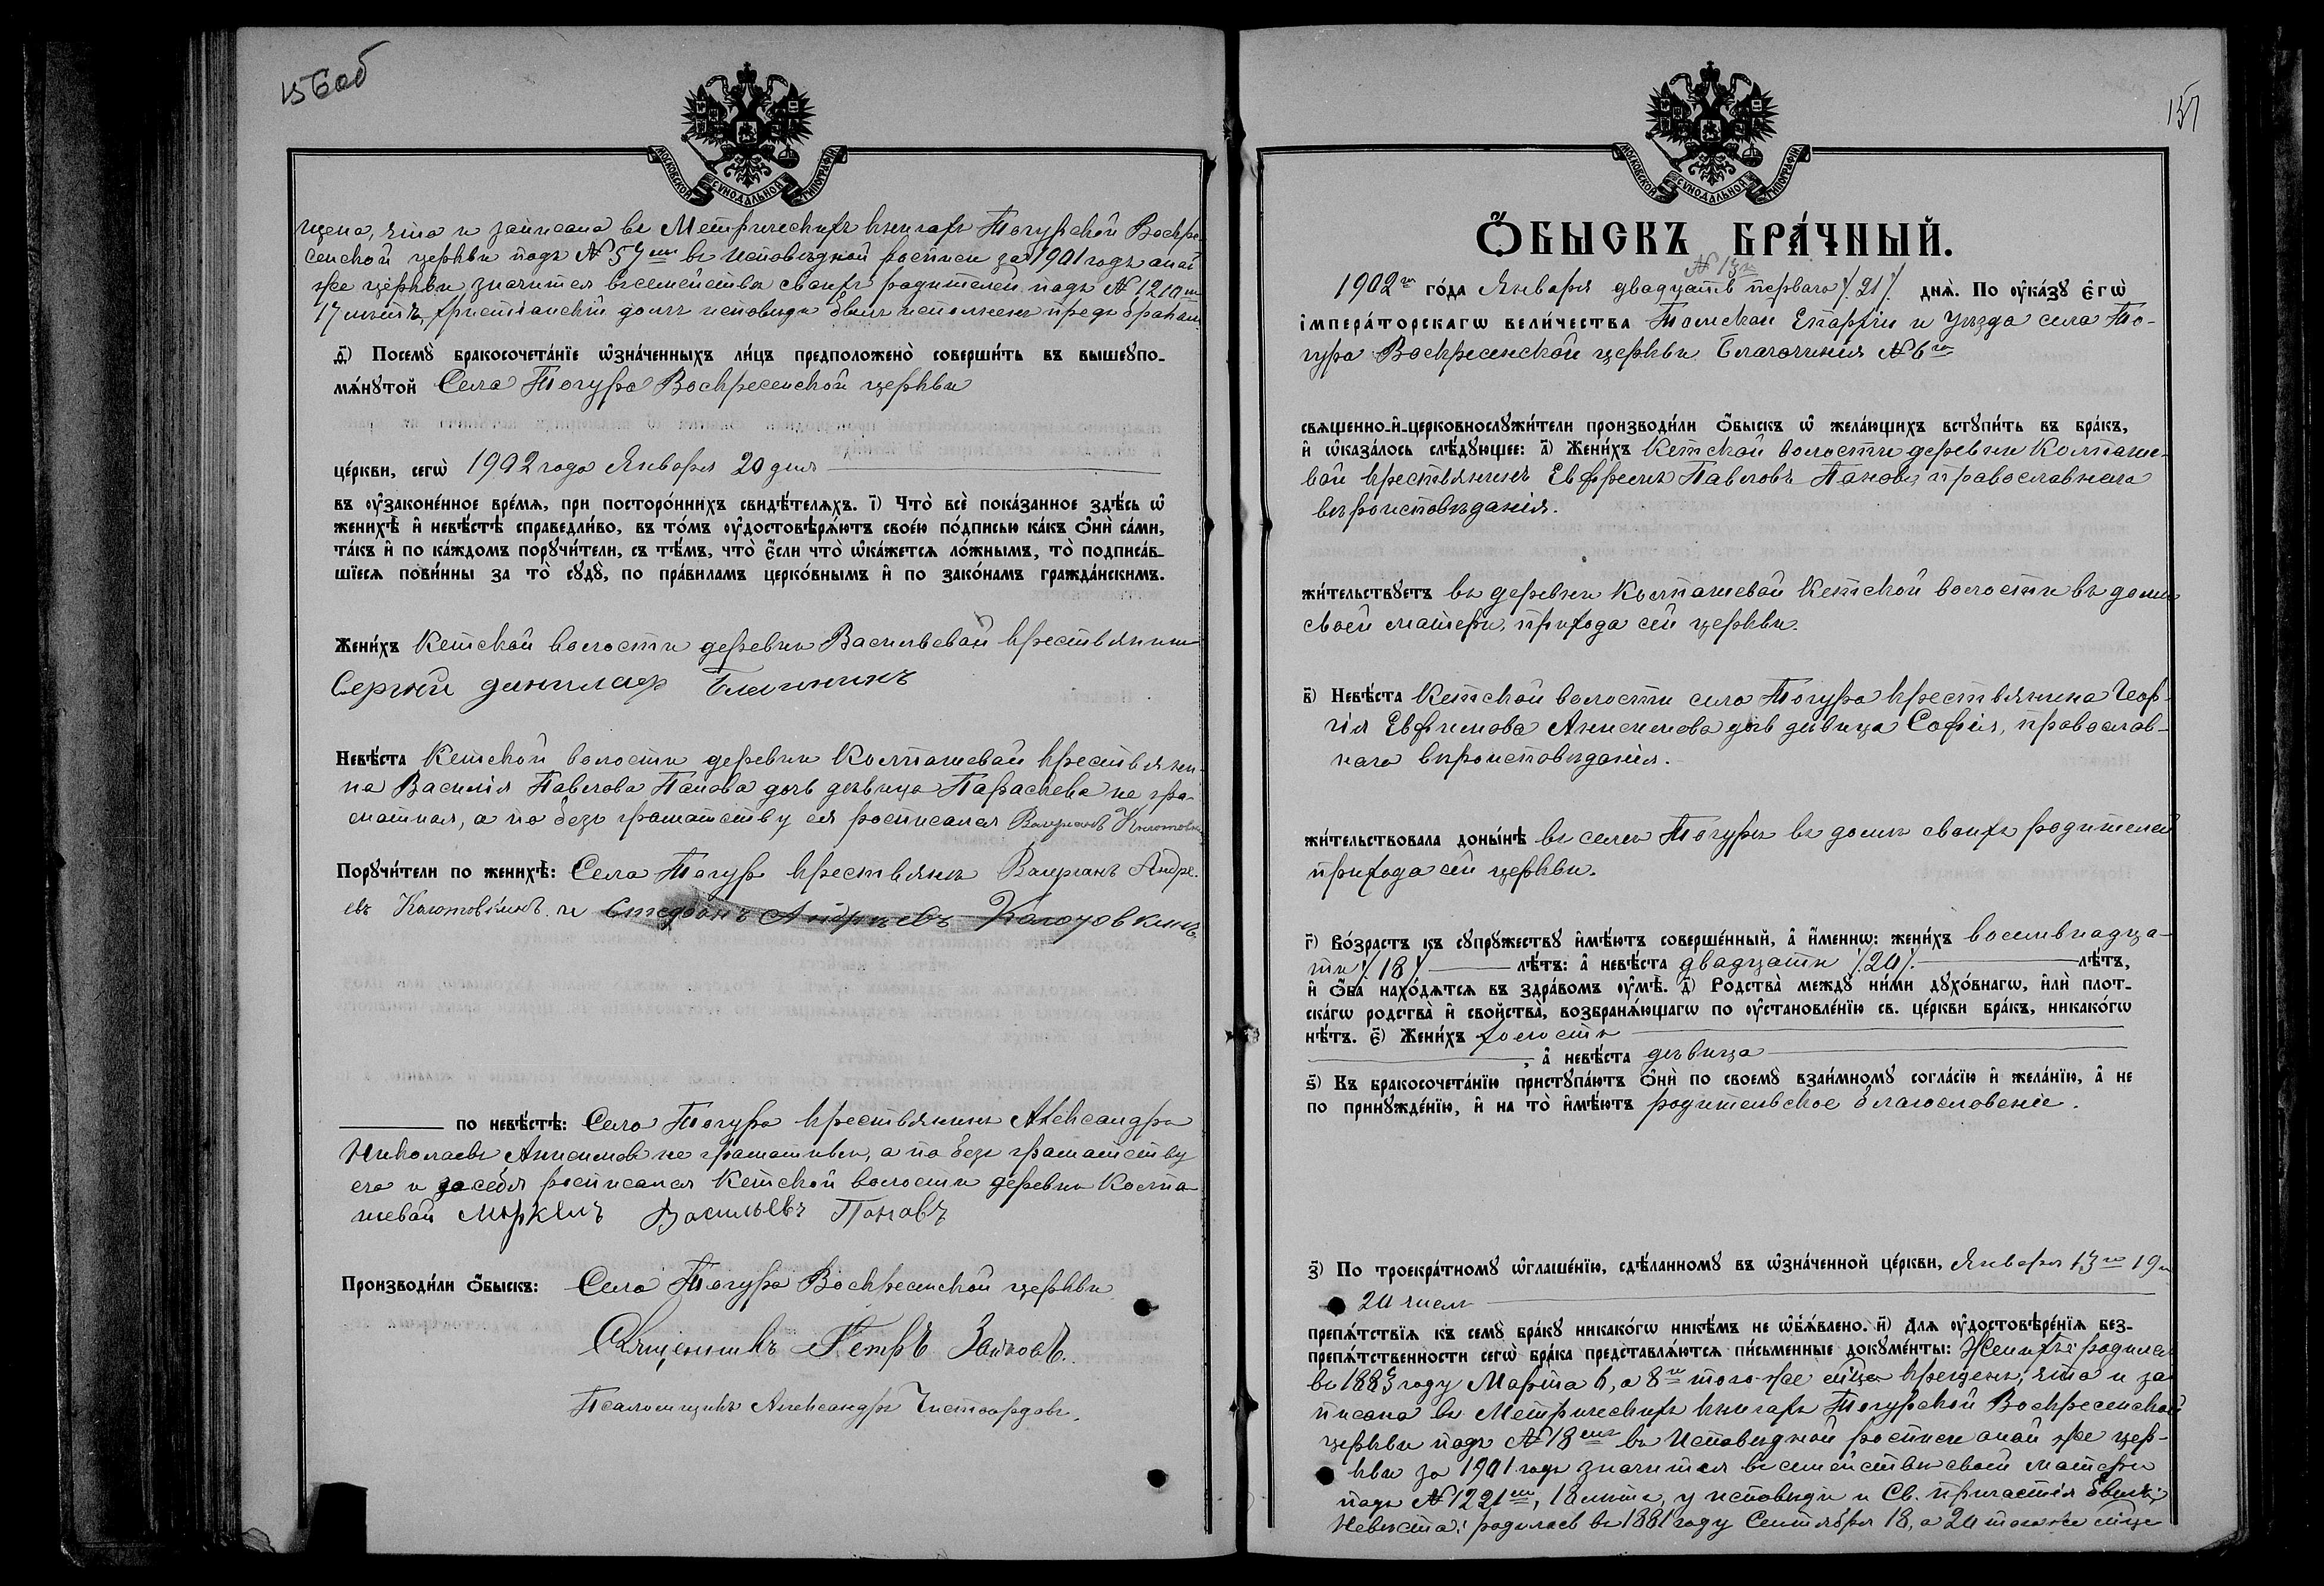 156 об
МОСКОВСКОЙ СѴНОДАЛЬНОЙ ТИПОГРАФІИ
щена, что и записано въ Метрическихъ книгахъ Тогурской Воскре-
сенской церкви подъ № 57мъ въ Исповѣдной росписи за 1901 годъ оной
же церкви значится въ семействѣ своихъ родителей подъ № 1210мъ
17 лѣтъ, христіанскій долгъ исповѣди былъ исполненъ предъ бракомъ
ѳ҃) Посемꙋ̀ бракосочета́нїе ѡ҆зна́ченныхъ ли́цъ предположено̀ соверши́ть въ вышеꙋпо-
мѧ́нꙋтой Села Тогура Воскресенской церкви
це́ркви, сегѡ̀ 1902 года Января 20 дня
въ ᲂу҆зако́ненное вре́мѧ, при посторо́ннихъ свидѣ́телѧхъ. і҃) Что̀ всѐ пока́занное здѣ́сь ѡ҆
женихѣ̀ и҆ невѣ́стѣ справедли́во, въ то́мъ ᲂу҆достовѣрѧ́ютъ свое́ю по́дписью ка́къ ѻ҆нѝ са́ми,
та́къ и҆ по ка́ждомъ порꙋчи́тели, съ тѣ́мъ, что̀ є҆́сли что̀ ѡ҆ка́жетсѧ ло́жнымъ, то̀ подписа́в-
шїесѧ пови́нны за то̀ сꙋдꙋ̀, по пра́виламъ церко́внымъ и҆ по зако́намъ гражда́нскимъ.
Жени́хъ Кетской волости деревни Васильевой крестьянинъ
Сергѣй Данилар Блининъ
Невѣ́ста Кетской волости деревни Колпашевой крестьяни-
на Василія Павлова Панова дочь дѣвица Параскева не гра-
мотная, а по безграмотству ея росписался Валерианъ Колотовкинъ
Порꙋчи́тели по женихѣ̀: Села Тогур крестьянъ Валерианъ Андре-
евъ Колотовкинъ и Стефанъ Андреевъ Колотовкинъ
по невѣ́стѣ: Села Тогура крестьянинъ Александръ
Николаевъ Анисимовъ не грамотный, а по безграмотству
его и за себя росписался Кетской волости деревни Колпа-
шевой Меркелъ Васильевъ Пановъ
Производи́ли ѻ҆́быскъ: Села Тогура Воскресенской церкви
Священникъ Петръ Зайковъ.
Псаломщикъ Александръ Чистосердовъ.
157
МОСКОВСКОЙ СѴНОДАЛЬНОЙ ТИПОГРАФІИ
Ѻ҆́БЫСКЪ БРА́ЧНЫЙ.
№ 13й
1902го го́да Января двадцать перваго /.21/. днѧ̀. По ᲂу҆ка́зꙋ є҆гѡ̀
і҆мпера́торскагѡ вели́чества Томской Епархіи и Уѣзда села То-
гура Воскресенской церкви Благочинія № 6го
свѧщенно-и҆-церковнослꙋжи́тели производи́ли ѻ҆́быскъ ѡ҆ жела́ющихъ встꙋпи́ть въ бра́къ,
и҆ ѡ҆каза́лось слѣ́дꙋющее: а҃) Жени́хъ Кетской волости деревни Колпаше-
вой крестьянинъ Евфремъ Павловъ Пановъ, православнаго
вѣроисповѣданія.
жи́тельствꙋетъ въ деревни Колпашевой Кетской волости въ домѣ
своей матери, прихода сей церкви.
в҃) Невѣ́ста Кетской волости села Тогура крестьянина Геор-
гія Евфимова Анисимова дочь дѣвица Софія, православ-
наго вѣроисповѣданія.
жи́тельствовала доны́нѣ въ селѣ Тогурѣ въ домѣ своихъ родителей
прихода сей церкви.
г҃) Во́зрастъ къ сꙋпрꙋ́жествꙋ и҆мѣ́ютъ соверше́нный, а҆ и҆́менно: жени́хъ восемьнадца-
ти /.18/. лѣ́тъ: а҆ невѣ́ста двадцати /.20/. лѣ́тъ,
и҆ ѻ҆́ба нахо́дѧтсѧ въ здра́вомъ ᲂу҆мѣ̀. д҃) Родства̀ междꙋ ни́ми дꙋхо́внагѡ, и҆лѝ плот-
ска́гѡ родства̀ и҆ сво́йства, возбранѧ́ющагѡ по ᲂу҆становле́нїю св. це́ркви бра́къ, никако́гѡ
нѣ́тъ. є҃) Жени́хъ холостъ
, а҆ невѣ́ста дѣвица
ѕ҃) Къ бракосочета́нїю пристꙋпа́ютъ ѻ҆нѝ по своемꙋ̀ взаи́мномꙋ согла́сїю и҆ жела́нїю, а҆ не
по принꙋжде́нїю, и҆ на то̀ и҆мѣ́ютъ родительское благословеніе.
з҃) По троекра́тномꙋ ѡ҆глаше́нїю, сдѣ́ланномꙋ въ ѡ҆зна́ченной це́ркви, Января 13го 19го
20 числъ
препѧ́тствїѧ къ семꙋ̀ бра́кꙋ никако́гѡ никѣ́мъ не ѡ҆б̾ѧ́влено. и҃) Длѧ ᲂу҆достовѣре́нїѧ без-
препѧ́тственности сегѡ̀ бра́ка представлѧ́ютсѧ пи́сьменные докꙋме́нты: Женихъ: родился
въ 1883 году Марта 6, а 8го того-же м-ца крещенъ, что и за-
писано въ Метрическихъ книгахъ Тогурской Воскресенской
церкви подъ № 18мъ въ Исповѣдной росписи оной же цер-
кви за 1901 годъ значится въ семействѣ своей матери
подъ № 1221мъ, 18 лѣтъ, у исповѣди и Св. причастія былъ;
Невѣста: родилась въ 1881 году Сентября 18, а 20 того-же м-ца